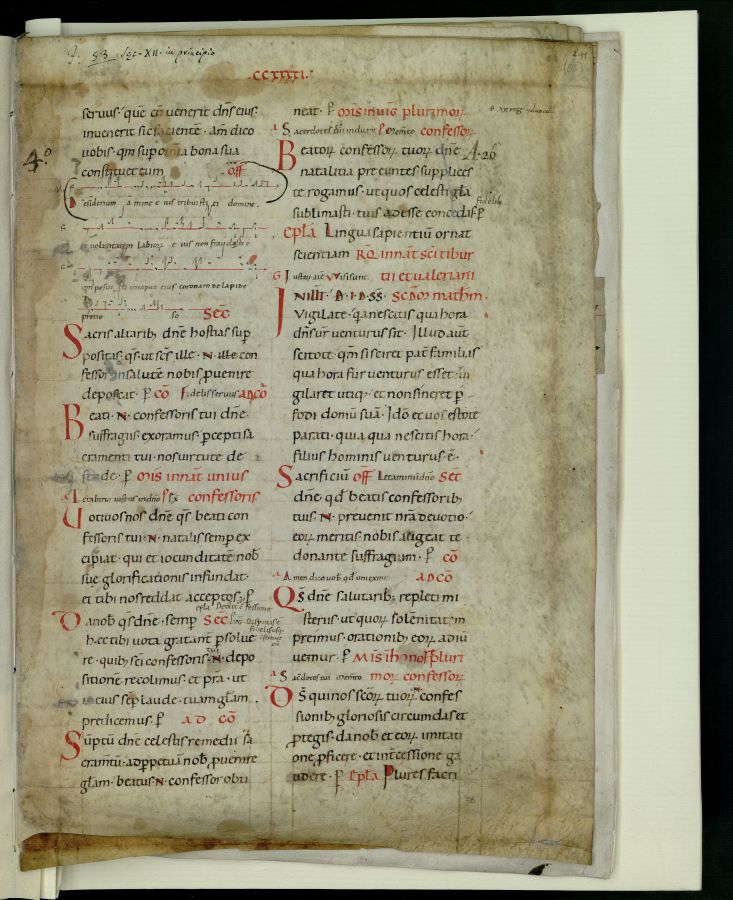 F. 83. Sęc. XII in principio
.CCXXXXI.
4.º
seruus· que cū uenerit dn̄s eius·
inuenerit sic facientē· am̄ dico
uobis· qm̄ sup om̄ia bona sua
constituet eum off̄
Desiderium animę eius tribuisti ei domine.
et uoluntatem labiorꝝ eius non fraudasti e
posuisti in capite eius coronam de lapide
precio so Sec̄
Sacris altarib; dn̄e hostias sup
positas· q̄s· ut sc̄s ille· N· ille con
fessor in salutē nobis puenire
deposcat· P̄ cō Fidelis seruus ad cō
Beati· N· confessoris tui dn̄e·
suffragiis exoramus· pcepti sa
cramenti tui· nos uirtute de
fende· P̄ om̄is in nat̄ unius
Letabitur iustus in dn̄o Ps Ex confessoris
Uotiuos nos dn̄e q̄s beati con
fessoris tui· N· natalis semp ex
cipiat· qui et iocunditatē nob̄
suę glorificationis infundat·
et tibi nos reddat acceptos· P̄
epla Dedit cōfessione
Da nob̄ q̄s dn̄e· semp Sec̄
hęc tibi uota gratant̄ psolue
re· quib; sc̄i confessoris· N· depo
sitionē recolimus· et p̄ra· ut
in eius semp laude· tuam glam̄·
predicemus· P̄ AD CŌ
Sūptū dn̄e celestis remedii sa
cram̄tū· ad ppetuā nob̄ puenire
glam̄· beatus· N· confessor obti
neat· P̄ om̄is in uig̅ plurimorꝝ
Sacerdotes tui induant Ps Mem̄to confessorꝝ
Beatorꝝ confessorꝝ tuorꝝ dn̄e A. 26
natalitia preeuntes supplices
te rogamus· ut quos celesti gla
sublimasti· tuis adesse concedas fidelib; P̄
epla Lingua sapientiū ornat
scientiam RQ̄ in nat̄ sc̄i tibur
G Iustorꝝ anime Visi sunt tii et ualeriani
IN ILLŌ· D· I· D· S̄S· SC̄DŌꝝ mathm̄·
Vigilate· qa nescitis qua hora
dn̄s ur̄ uenturus sit· Illud aūt
scitote· qm̄ si sciret pat̄ familias
qua hora fur uenturus esset· ui
gilaret utiq;· et non sineret p
fodi domū suā· Ideo et uos estote
parati· quia qua nescitis hora·
filius hominis uenturus· ē·
Sacrificiū off̄ Letamini in dn̄o Sec̄
dn̄e qd̄ beatis confessorib;
tuis· N· preuenit nr̄a deuotio·
eorꝝ meritis· nobis augeat te
donante suffragium· P̄ cō
Amen dico uob̄ qd̄ uni ex mi AD CŌ
Qs̄ dn̄e salutarib; repleti mi
steriis· ut quorꝝ solēnitatem
preimus· orationib; eorꝝ adiu
uemur· P̄ MIS̄ IN nos̄ pluri
Sacerdotes tui Mem̄to morꝝ confessorꝝ
Ds̄ qui nos sc̄orꝝ tuorꝝ N̄ confes
sionib; gloriosis circumdas et
ptegis· da nob̄ et eorꝝ imitati
one pficere· et int̄cessione ga
udere· P̄ Epla Plures facti